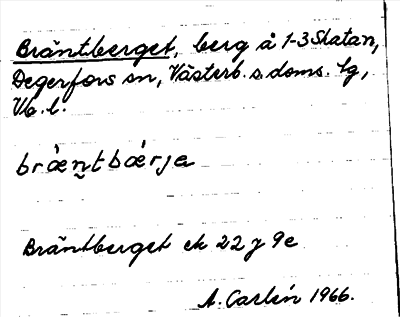 Bräntberget, berg å 1-3 Slatan,
Degerfors sn, Västerb. s. doms. lg,
Vb. l.
bræ̀n̰tbærja
Bräntberget ek 22 J 9e
A. Carlén 1966.